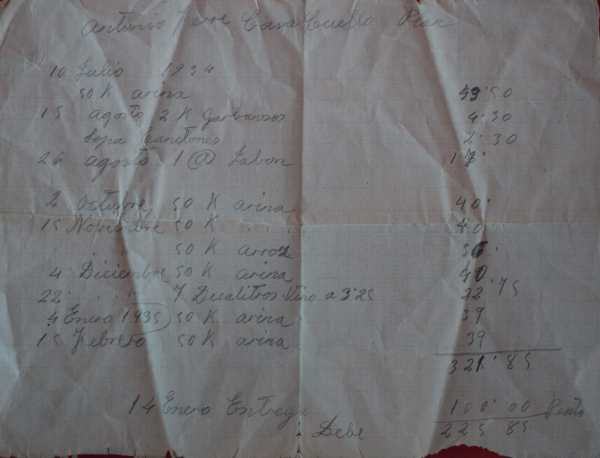 Antonio Cara Cuello
10 Julio 1934
50 K arina 43'50
15 agosto 2 K Garbansos 4'30
Sopa Canetones 2'30
26 agosto 1 @ Jabon 17'
2 Octubre, 50 K arina 40'
15 Noviembre 50 K " " 40
50 K arroz 56'
4 Diciembre 50 K arina 40
22 " " 7 Decalitros Vino a 3'25 22'75
4 Enero 1935 50 K arina 39
15 Febrero 50 K arina 39
321'85
14 Enero Entrega 100'00
Debe 225 85